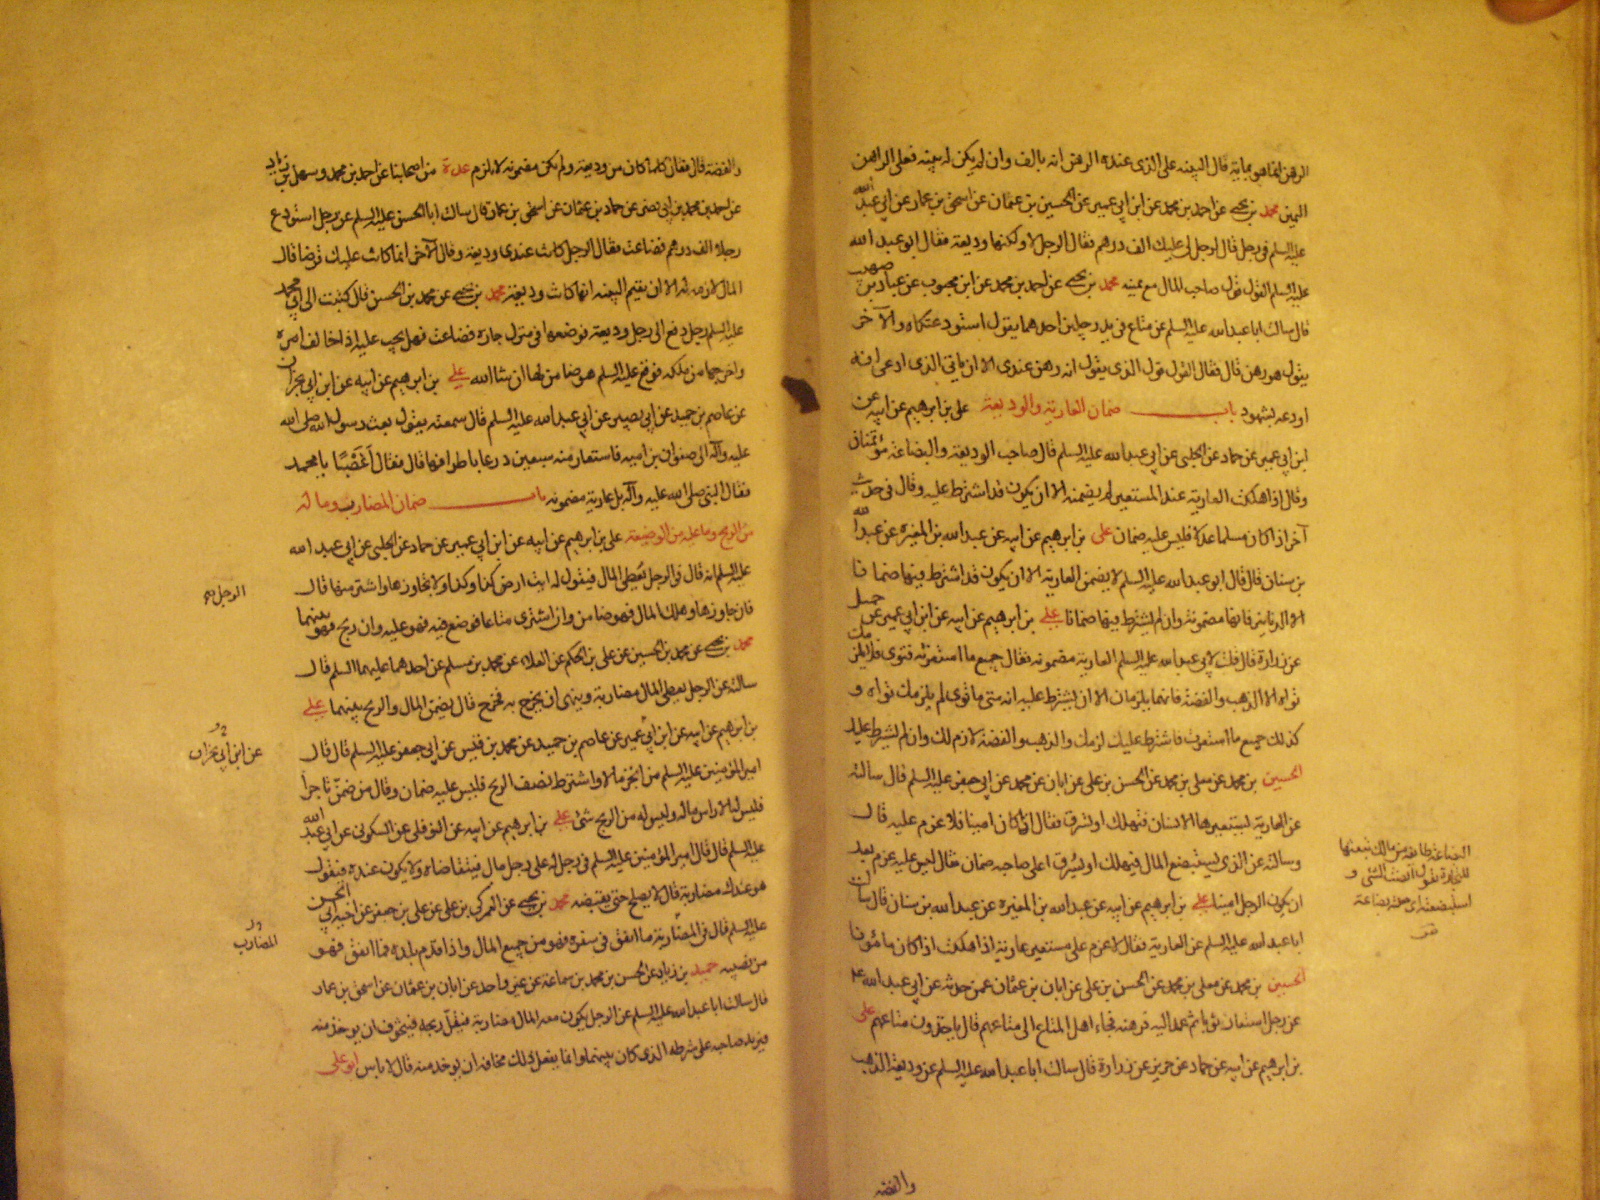 الرهن انما هو بماية قال البينه على الذى عنده الرهن انه بالف وان لم يكن له بينه فعلى الراهن
اليمين محمد بن يحيى عن احمد بن محمد عن ابن ابي عمير عن الحسين بن عثمان عن اسحق بن عمار عن ابي عبد الله
عليه السلم فى رجل قال لرجل لى عليك الف درهم فقال الرجل لا ولكنها وديعة فقال ابو عبد الله
عليه السلم القول قول صاحب المال مع يمينه محمد بن يحيى عن احمد بن محمد عن ابن محبوب عن عباد بن صهيب
قال سالت ابا عبد الله عليه السلم عن متاع فى يد رجلين احدهما يقول استودعتكاه والآخر
يقول هو رهن قال فقال القول قول الذى يقول انه رهن عندى الا ان ياتى الذى ادعى انه
اودعه بشهود باب ضمان العارية والوديعة على بن ابرهيم عن ابيه عن
ابن ابي عمير عن حماد عن الحلبى عن ابي عبد الله عليه السلم قال صاحب الوديعة والبضاعة مؤتمنان
وقال اذا هلكت العارية عند المستعير لم يضمنه الا ان يكون قد اشترط عليه وقال فى حديث
آخر اذا كان مسلما عدلا فليس عليه ضمان على بن ابرهيم عن ابيه عن عبد الله بن المغيرة عن عبد الله
بن سنان قال قال ابو عبد الله عليه السلم لا يضمن العارية الا ان يكون قد اشترط فيها ضمانا
الا الدنانير فانها مضمونة وان لم يشترط فيها ضمانا على بن ابرهيم عن ابيه عن ابن ابي عمير عن جميل
عن زرارة قال قلت لابي عبد الله عليه السلم العارية مضمونه فقال جميع ما استعرته فتوى فلا يلزمك
تواه الا الذهب والفضة فانهما يلزمان الا ان يشترط عليه انه متى ما توى لم يلزمك تواه و
كذلك جميع ما استعرت فاشترط عليك لزمك والذهب والفضة لازم لك وان لم يشترط عليك
الحسين بن محمد عن معلى بن محمد عن الحسن بن على عن ابان عن محمد عن ابي جعفر عليه السلم قال سالته
عن العارية يستعيرها الانسان فتهلك او تسرق فقال اذا كان امينا فلا غرم عليه قال
وسالته عن الذى يستبضع المال فيهلك او يسرق اعلى صاحبه ضمان فقال ليس عليه غرم بعد
ان يكون الرجل امينا على بن ابرهيم عن ابيه عن عبد الله بن المغيرة عن عبد الله بن سنان قال سالت
ابا عبد الله عليه السلم عن العارية فقال لا غرم على مستعير عارية اذا هلكت اذا كان مأمونا
الحسين بن محمد عن معلى بن محمد عن الحسن بن على عن ابان بن عثمان عمن حدثه عن ابي عبد الله ع
عن رجل استعار ثوبا ثم عمد اليه فرهنه فجاء اهل المتاع الى متاعهم قال ياخذون متاعهم على
بن ابرهيم عن ابيه عن حماد عن حريز عن زرارة قال سالت ابا عبد الله عليه السلم عن وديعة الذهب
والفضة
البضاعة طائفة من مالك تبعثها
للتجارة تقول ابضعت الشى و
استبضعته اى جعلته بضاعة
والفضة قال فقال كلما كان من وديعة ولم يكن مضمونه لا يلزم عدة من اصحابنا عن احمد بن محمد وسهل بن زياد
عن احمد بن محمد بن ابي نصر عن حماد بن عثمان عن اسحق بن عمار قال سالت ابا الحسن عليه السلم عن رجل استودع
رجلا الف درهم فضاعت فقال الرجل كانت عندى وديعة وقال الآخر انما كانت عليك قرضا قال
المال لازم له الا ان يقيم البينه انها كانت وديعة محمد بن يحيى عن محمد بن الحسن قال كتبت الى ابي محمد
عليه السلم رجل دفع الى رجل وديعة فوضعها فى منزل جاره فضاعت فهل يجب عليه اذا خالف امره
واخرجها من ملكه فوقع عليه السلم هو ضامن لها ان شا الله على بن ابرهيم عن ابيه عن ابن ابي نجران
عن عاصم بن حميد عن ابي بصير عن ابي عبد الله عليه السلم قال سمعته يقول بعث رسول الله صلى الله
عليه وآله الى صفوان بن امية فاستعار منه سبعين درعا باطراقها قال فقال أغَصْبًا يا محمد
فقال النبي صلى الله عليه وآله بل عارية مضمونه باب ضمان المضاربة وماله
من الربح وما عليه من الوضيعة على بن ابرهيم عن ابيه عن ابن ابي عمير عن حماد عن الحلبى عن ابي عبد الله
عليه السلم انه قال فى الرجل يُعطى المال فيقول له ايت ارض كذا وكذا ولا تجاوزها واشتر منها قال
فان جاوزها وهلك المال فهو ضامن وان اشترى متاعا فوضع فيه فهو عليه وان ربح فهو بينهما
محمد بن يحيى عن محمد بن الحسين عن على بن الحكم عن العلاء عن محمد بن مسلم عن احدهما عليهما السلم قال
سالته عن الرجل يعطى المال مضاربة وينهى ان يخرج به فخرج قال يضمن المال والربح بينهما على
بن ابرهيم عن ابيه عن ابن ابي عمير عن عاصم بن حميد عن محمد بن قيس عن ابي جعفر عليه السلم قال قال
امير المؤمنين عليه السلم من اتجر مالا واشترط نصف الربح فليس عليه ضمان وقال من ضمّن تاجرا
فليس له الا راس ماله وليس له من الربح شئ على بن ابرهيم عن ابيه عن النوفلى عن السكونى عن ابي عبد الله
عليه السلم قال قال امير المؤمنين عليه السلم فى رجل له على رجل مال فيتقاضاه ولا يكون عنده فيقول
هو عندك مضاربة قال لا يصلح حتى يقبضه محمد بن يحيى عن العمركى بن على عن على بن جعفر عن اخيه ابي الحسن
عليه السلم قال فى المضاربة ما انفق فى سفره فهو من جميع المال واذا قدم بلده فما انفق فهو
من نصيبه حميد بن زياد عن الحسن بن محمد بن سماعة عن غير واحد عن ابان بن عثمان عن اسحق بن عمار
قال سالت ابا عبد الله عليه السلم عن الرجل يكون معه المال مضاربة فيقلّ ربحه فيتخوف ان يوخذ منه
فيزيد صاحبه على شرطه الذى كان بينهما وانما يفعل ذلك مخافة ان يوخذ منه قال لا باس ابو على
الرجل
عن ابن ابي نجران
المضارب